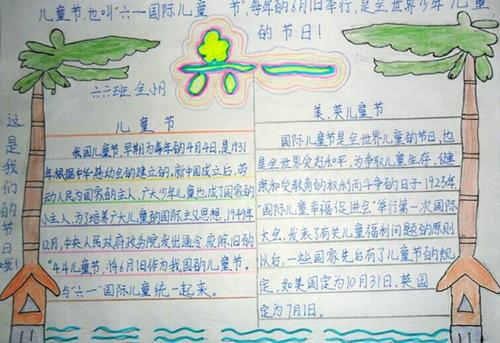 儿童节,也叫"六一国际儿童节",每年的6月1日举行,是全世界少年儿童
的节日!
六一
六六班
这是我们的节日哦!
儿童节
我国儿童节,早期为每年的4月4日,是1931
年根据中华慈幼会的建立的,新中国成立后,劳
动人民为国家的主人,广大少年儿童也成了国家的
小主人,为了培养广大儿童的国际主义思想,1949年
12月,中央人民政府政务院发出通令,废除旧的
"44儿童节,将6月1日作为我国的儿童节。
与"六一"国际儿童统一起来。
美、英儿童节
国际儿童节是全世界儿童的节日,也
是全世界爱好和平,为争取儿童生存,保健
康和受教育的权利而斗争的日子1923年,
"国际儿童幸福促进会"举行第一次国际
大会,发表了有关儿童福利问题的原则
以后,一些国家先后有了儿童节日的规
定,如美国定为10月31日,英国
定为7月1日。